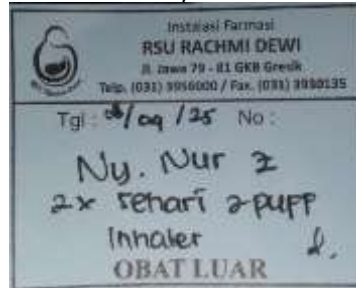 Instalasi Farmasi
RSU RACHMI DEWI
Jl. Jawa 79 - 81 GKB Gresik
Telp. (031) 3956000 / Fax. (031) 3930135
Tgl : 06/09/25 No :
Ny. Nur Z
2x sehari 2 pupp
Inhaler
OBAT LUAR